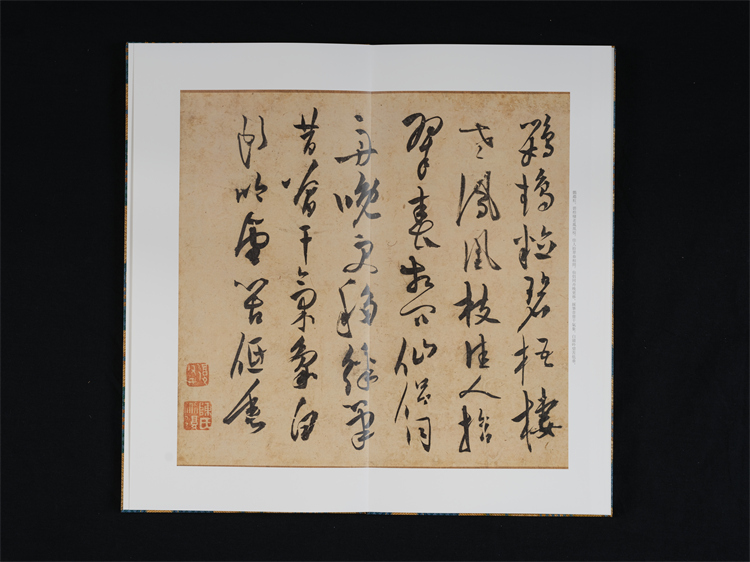 鸚鵡粒碧梧棲
老鳳凰枝佳人拾
翠春相問仙侶同
舟晚更移綵筆
昔曾干氣象白
頭吟望苦低垂